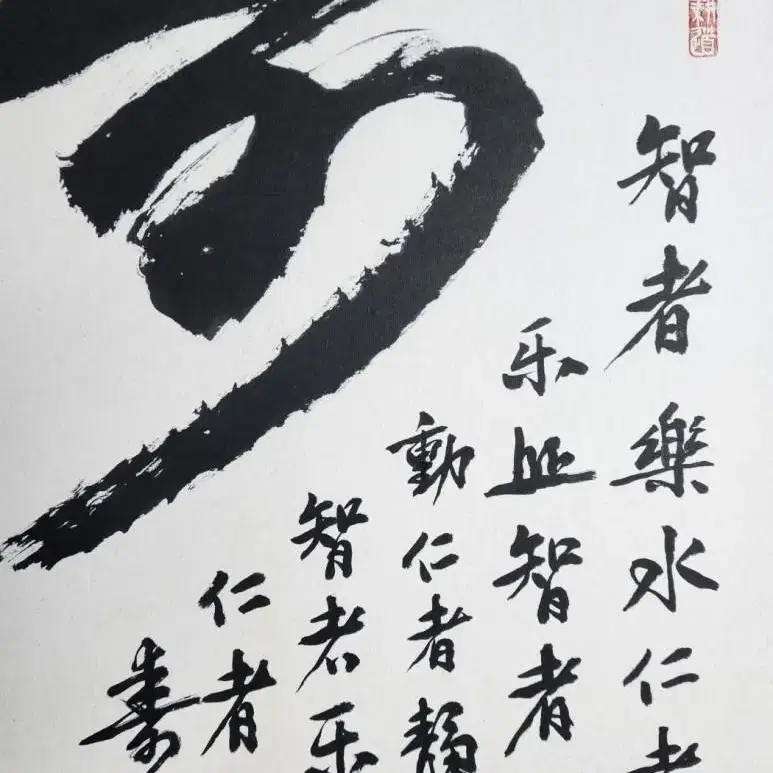 智者樂水仁者
乐山智者
動仁者静
智者乐
仁者
寿